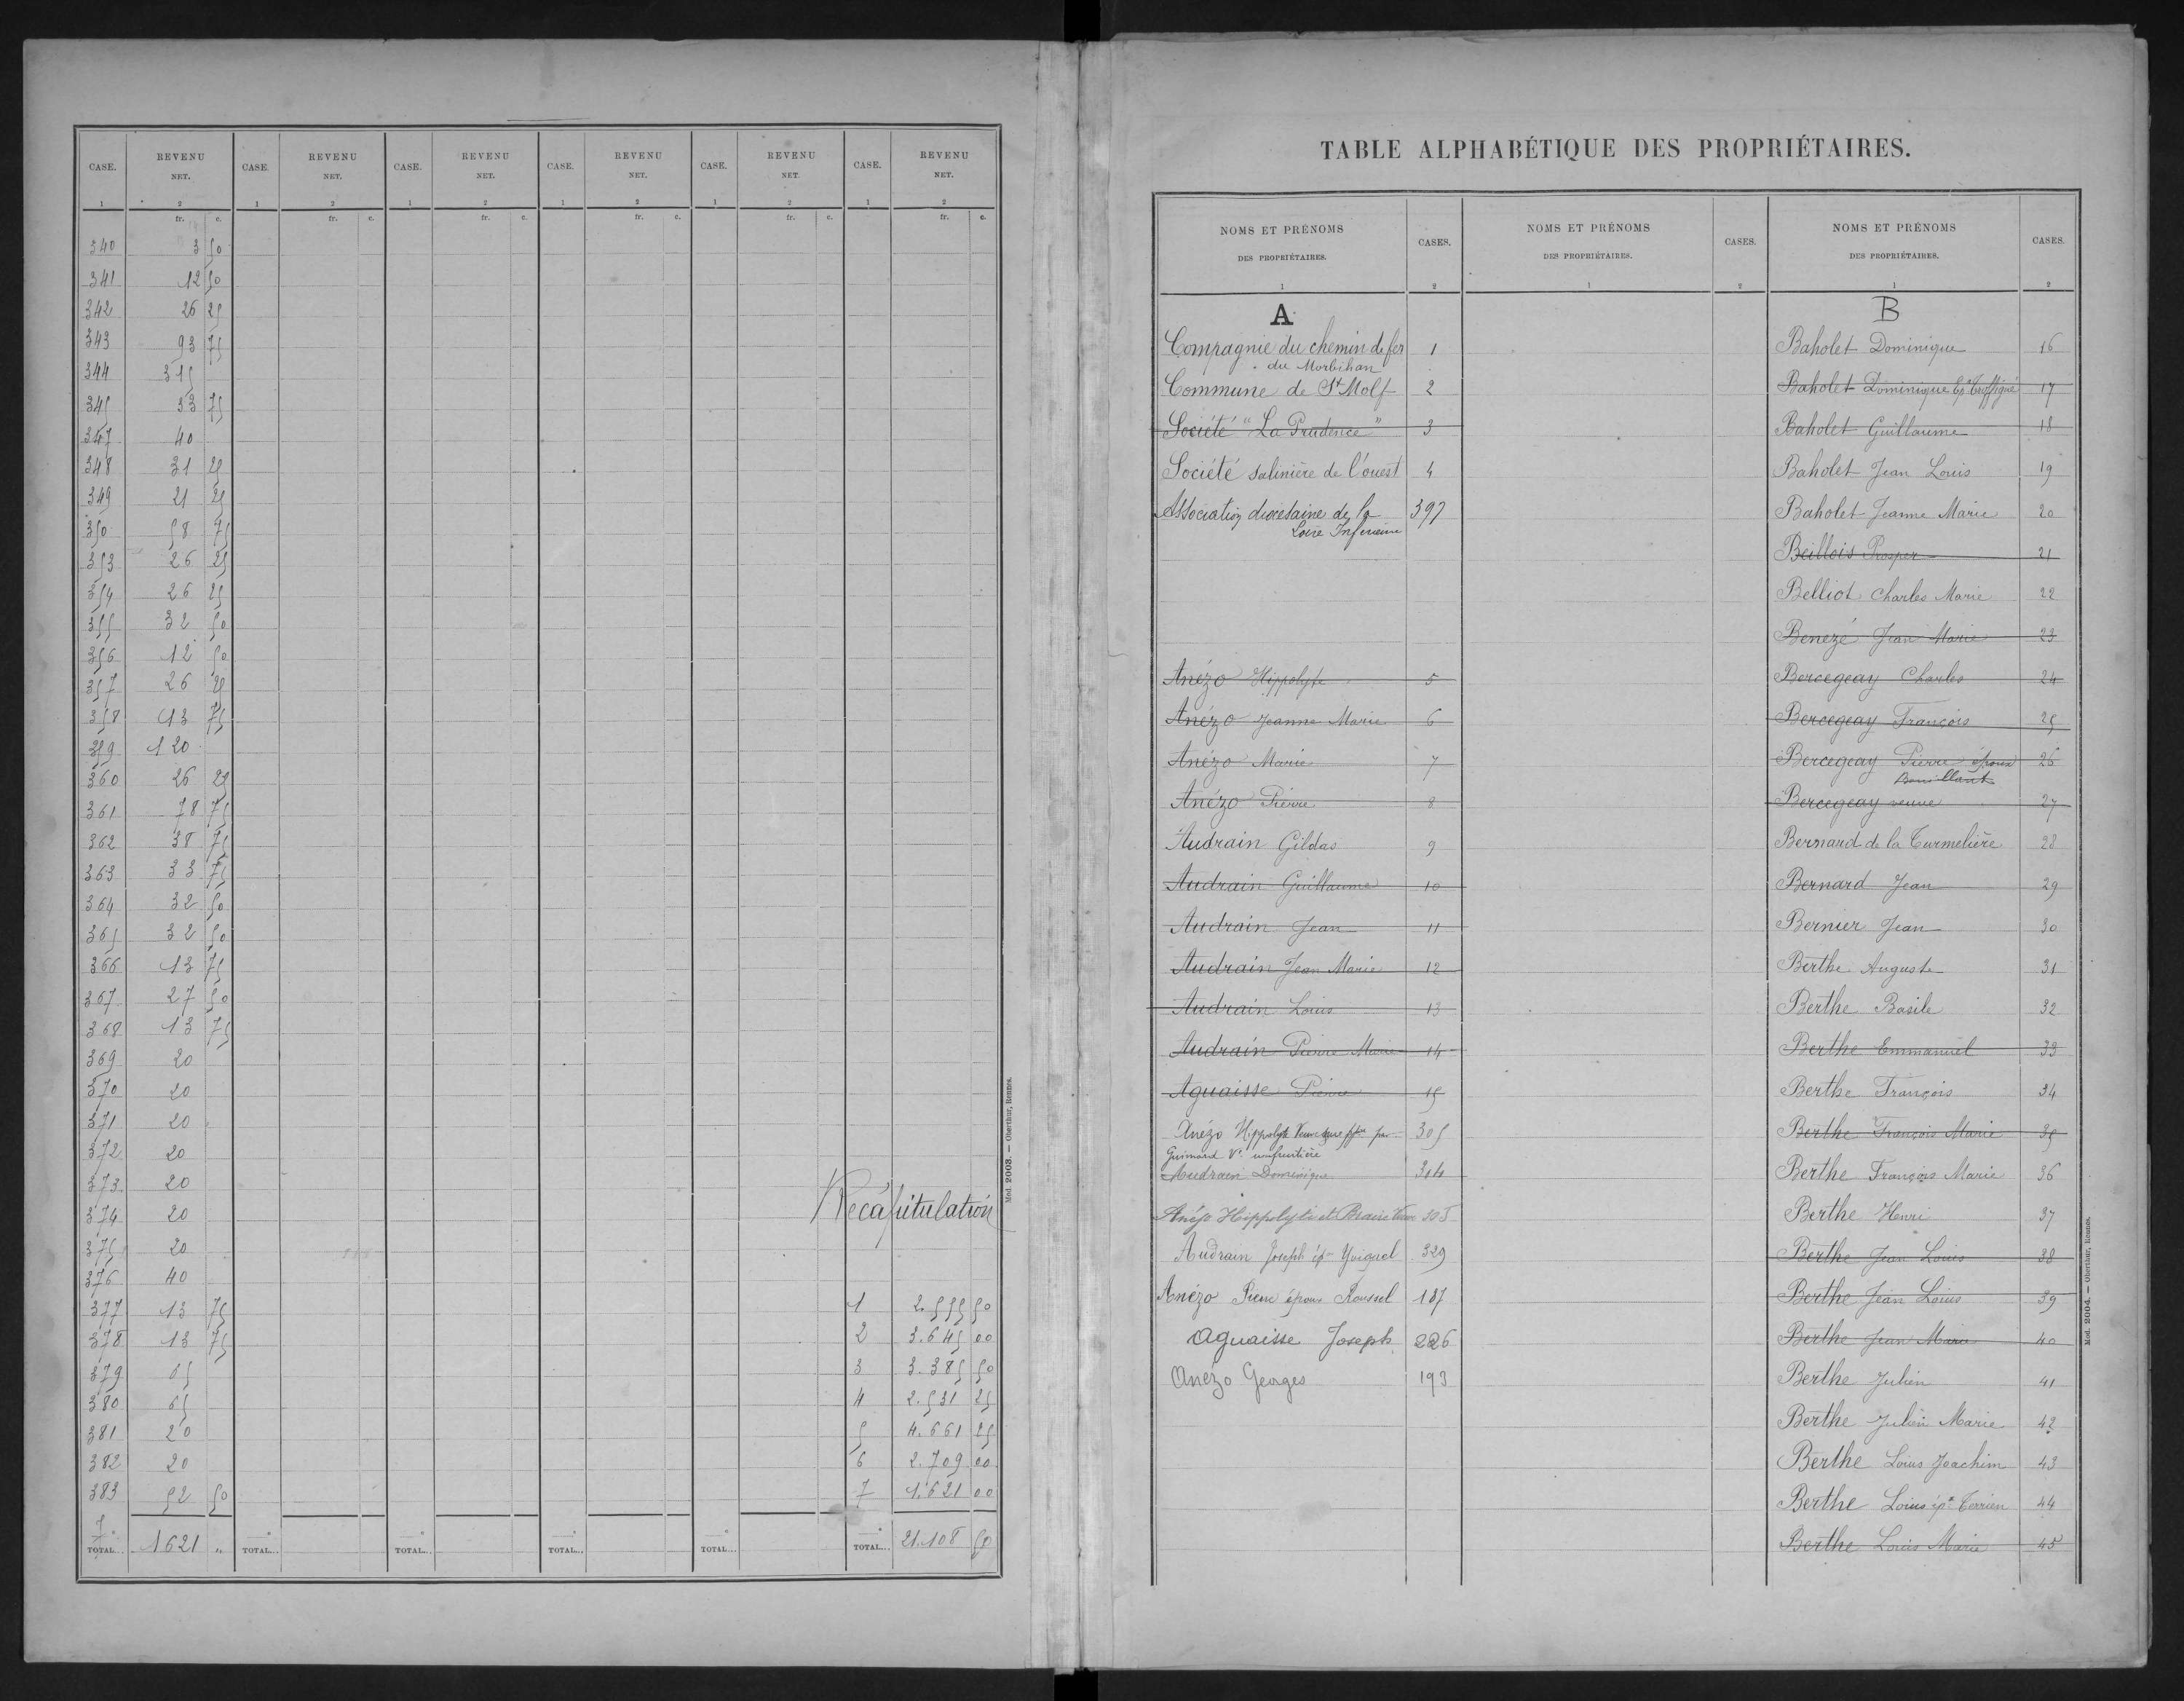 CASE. REVENU NET. CASE. REVENU NET. CASE. REVENU NET. CASE. REVENU NET. CASE. REVENU NET. CASE. REVENU NET.
1 2 1 2 1 2 1 2 1 2 1 2
fr. c. fr. c. fr. c. fr. c. fr. c. fr. c.
340 3 50
341 12 50
342 26 25
343 93 75
344 315
345 33 75
347 40
348 31 25
349 21 25
350 58 75
353 26 25
354 26 25
355 32 50
356 12 50
357 26 25
358 13 75
359 120
360 26 25
361 78 75
362 38 75
363 33 75
364 32 50
365 32 50
366 13 75
367 27 50
368 13 75
369 20
370 20
371 20
372 20
373 20
374 20
375 20
376 40
377 13 75
378 13 75
379 65
380 65
381 20
382 20
383 52 50
7e TOTAL... 1621 "
TOTAL... TOTAL... TOTAL... TOTAL...
Récapitulation
1 2.555 50
2 3.645 00
3 3.385 50
4 2.531 25
5 4.661 25
6 2.709 00
7 1.621 00
TOTAL... 21.108 50
Mod. 2003. — Oberthur, Rennes.
TABLE ALPHABÉTIQUE DES PROPRIÉTAIRES.
NOMS ET PRÉNOMS DES PROPRIÉTAIRES. CASES. NOMS ET PRÉNOMS DES PROPRIÉTAIRES. CASES. NOMS ET PRÉNOMS DES PROPRIÉTAIRES. CASES.
1 2 1 2 1 2
A
Compagnie du chemin de fer 1
du Morbihan
Commune de St Molf 2
Société "La Prudence" 3
Société salinière de l'ouest 4
Association diocésaine de la 397
Loire Inferieure
Anézo Hippolyte 5
Anézo Jeanne Marie 6
Anézo Marie 7
Anézo Pierre 8
Audrain Gildas 9
Audrain Guillaume 10
Audrain Jean 11
Audrain Jean Marie 12
Audrain Louis 13
Audrain Pierre Marie 14
Aguaisse Pierre 15
Anézo Hippolyte Veuve par 305
Guimard Ve usufruitière
Audrain Dominique 314
Anézo Hippolyte et 305
Audrain Joseph ép Yviquel 329
Anézo Pierre époux Roussel 187
Aguaisse Joseph 226
Anézo Georges 193
B
Baholet Dominique 16
Baholet Dominique Ep. 17
Baholet Guillaume 18
Baholet Jean Louis 19
Baholet Jeanne Marie 20
Beillois Prosper 21
Belliot Charles Marie 22
Benezé Jean Marie 23
Bercegeay Charles 24
Bercegeay François 25
Bercegeay Pierre époux 26
Bouillant
Bercegeay veuve 27
Bernard de la Turmelière 28
Bernard Jean 29
Bernier Jean 30
Berthe Auguste 31
Berthe Basile 32
Berthe Emmanuel 33
Berthe François 34
Berthe François Marie 35
Berthe François Marie 36
Berthe Henri 37
Berthe Jean Louis 38
Berthe Jean Louis 39
Berthe Jean Marie 40
Berthe Julien 41
Berthe Julien Marie 42
Berthe Louis Joachim 43
Berthe Louis épx Terrien 44
Berthe Louis Marie 45
Mod. 2004. — Oberthur, Rennes.